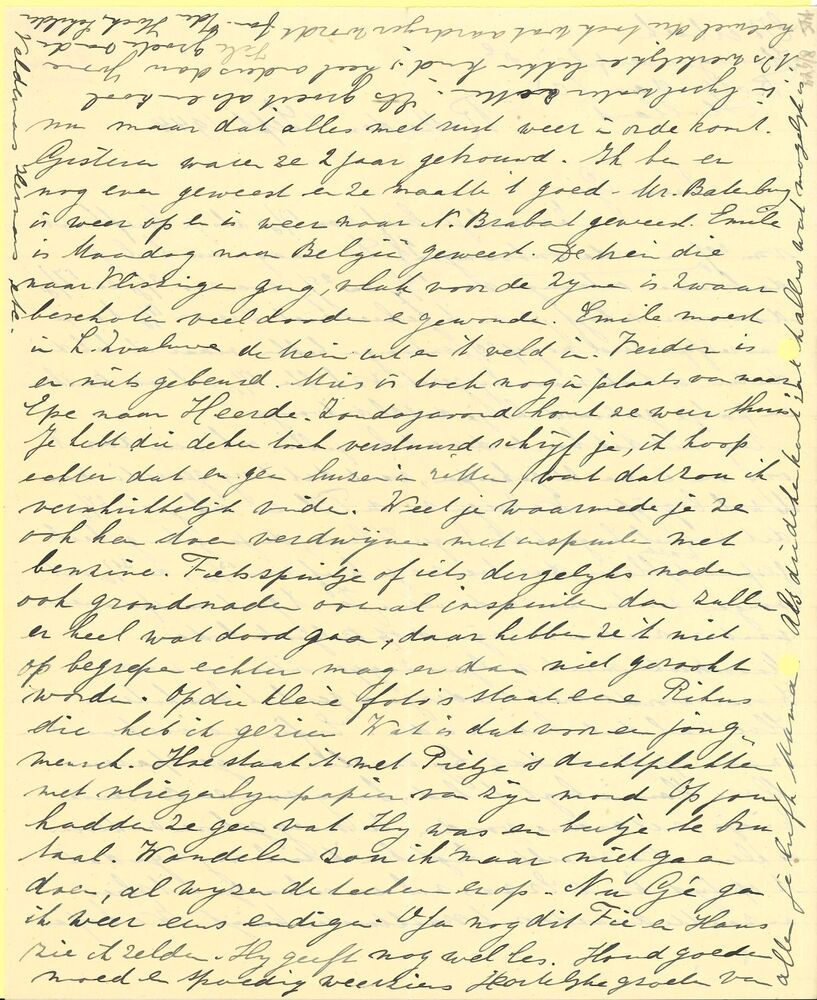 nu maar dat alles met rust weer in orde komt.
Gisteren waren ze 2 jaar getrouwd. Ik ben er
nog even geweest en ze maakte 't goed. Mr. Batenburg
is weer op en is weer naar N. Brabant geweest. Emile
is Maandag naar België geweest. De trein die
naar Vlissingen ging, vlak voor de zijne is zwaar
beschoten veel dooden en gewonden. Emile moest
in L. Zwaluwe de trein uit en 't veld in. Verder is
er niets gebeurd. Mies is toch nog in plaats van naar
Epe naar Heerde. Zondagavond komt ze weer thuis
Je hebt die deken toch verstuurd schrijf je, ik hoop
echter dat er geen luizen in zitten, want dat zou ik
verschrikkelijk vinden. Weet je waarmede je ze
ook kan doen verdwijnen met inspuiten met
benzine. Fietsspuitje of iets dergelijks naden
ook grondnaden overal inspuiten dan zullen
er heel wat dood gaan, daar hebben ze 't niet
op begrepen echter mag er dan niet gerookt
worden. Op die kleine foto's staat eene Rikus
die heb ik gezien Wat is dat voor een jong
mensch. Hoe staat it met Pietje is dichtplakken
met vliegenlijmpapier van zijn mond Op jou
hadden ze geen vat Hy was een beetje te bru
taal. Wandelen zou ik maar niet gaan
doen, al wyzen de teekenen erop. Nu Gé ga
ik weer eens eindigen. O ja nog dit Fie en Hans
zie ik zelden. Hy geeft nog wel les. Houd goeden
moed en spoedig weerziens Hartelijke groeten van
allen je liefh. Mama
Als dindeke komt zal ik alles wat mogelijk is
in IJsselwater zetten. Ils groeit als en kool
't Is werkelijk en lekker kind is heel anders dan Jona
hoewel die toch wat aardiger wordt
Veldemas Hermans etc.